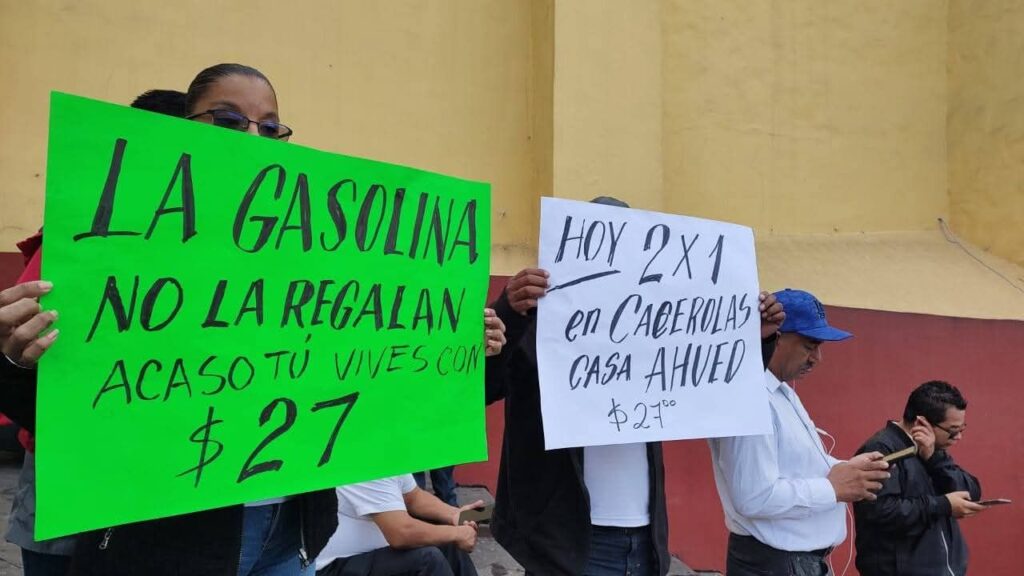 LA GASOLINA
NO LA REGALAN
ACASO TÚ VIVES CON
$27
HOY 2X1
en CACEROLAS
CASA AHUED
$27.00